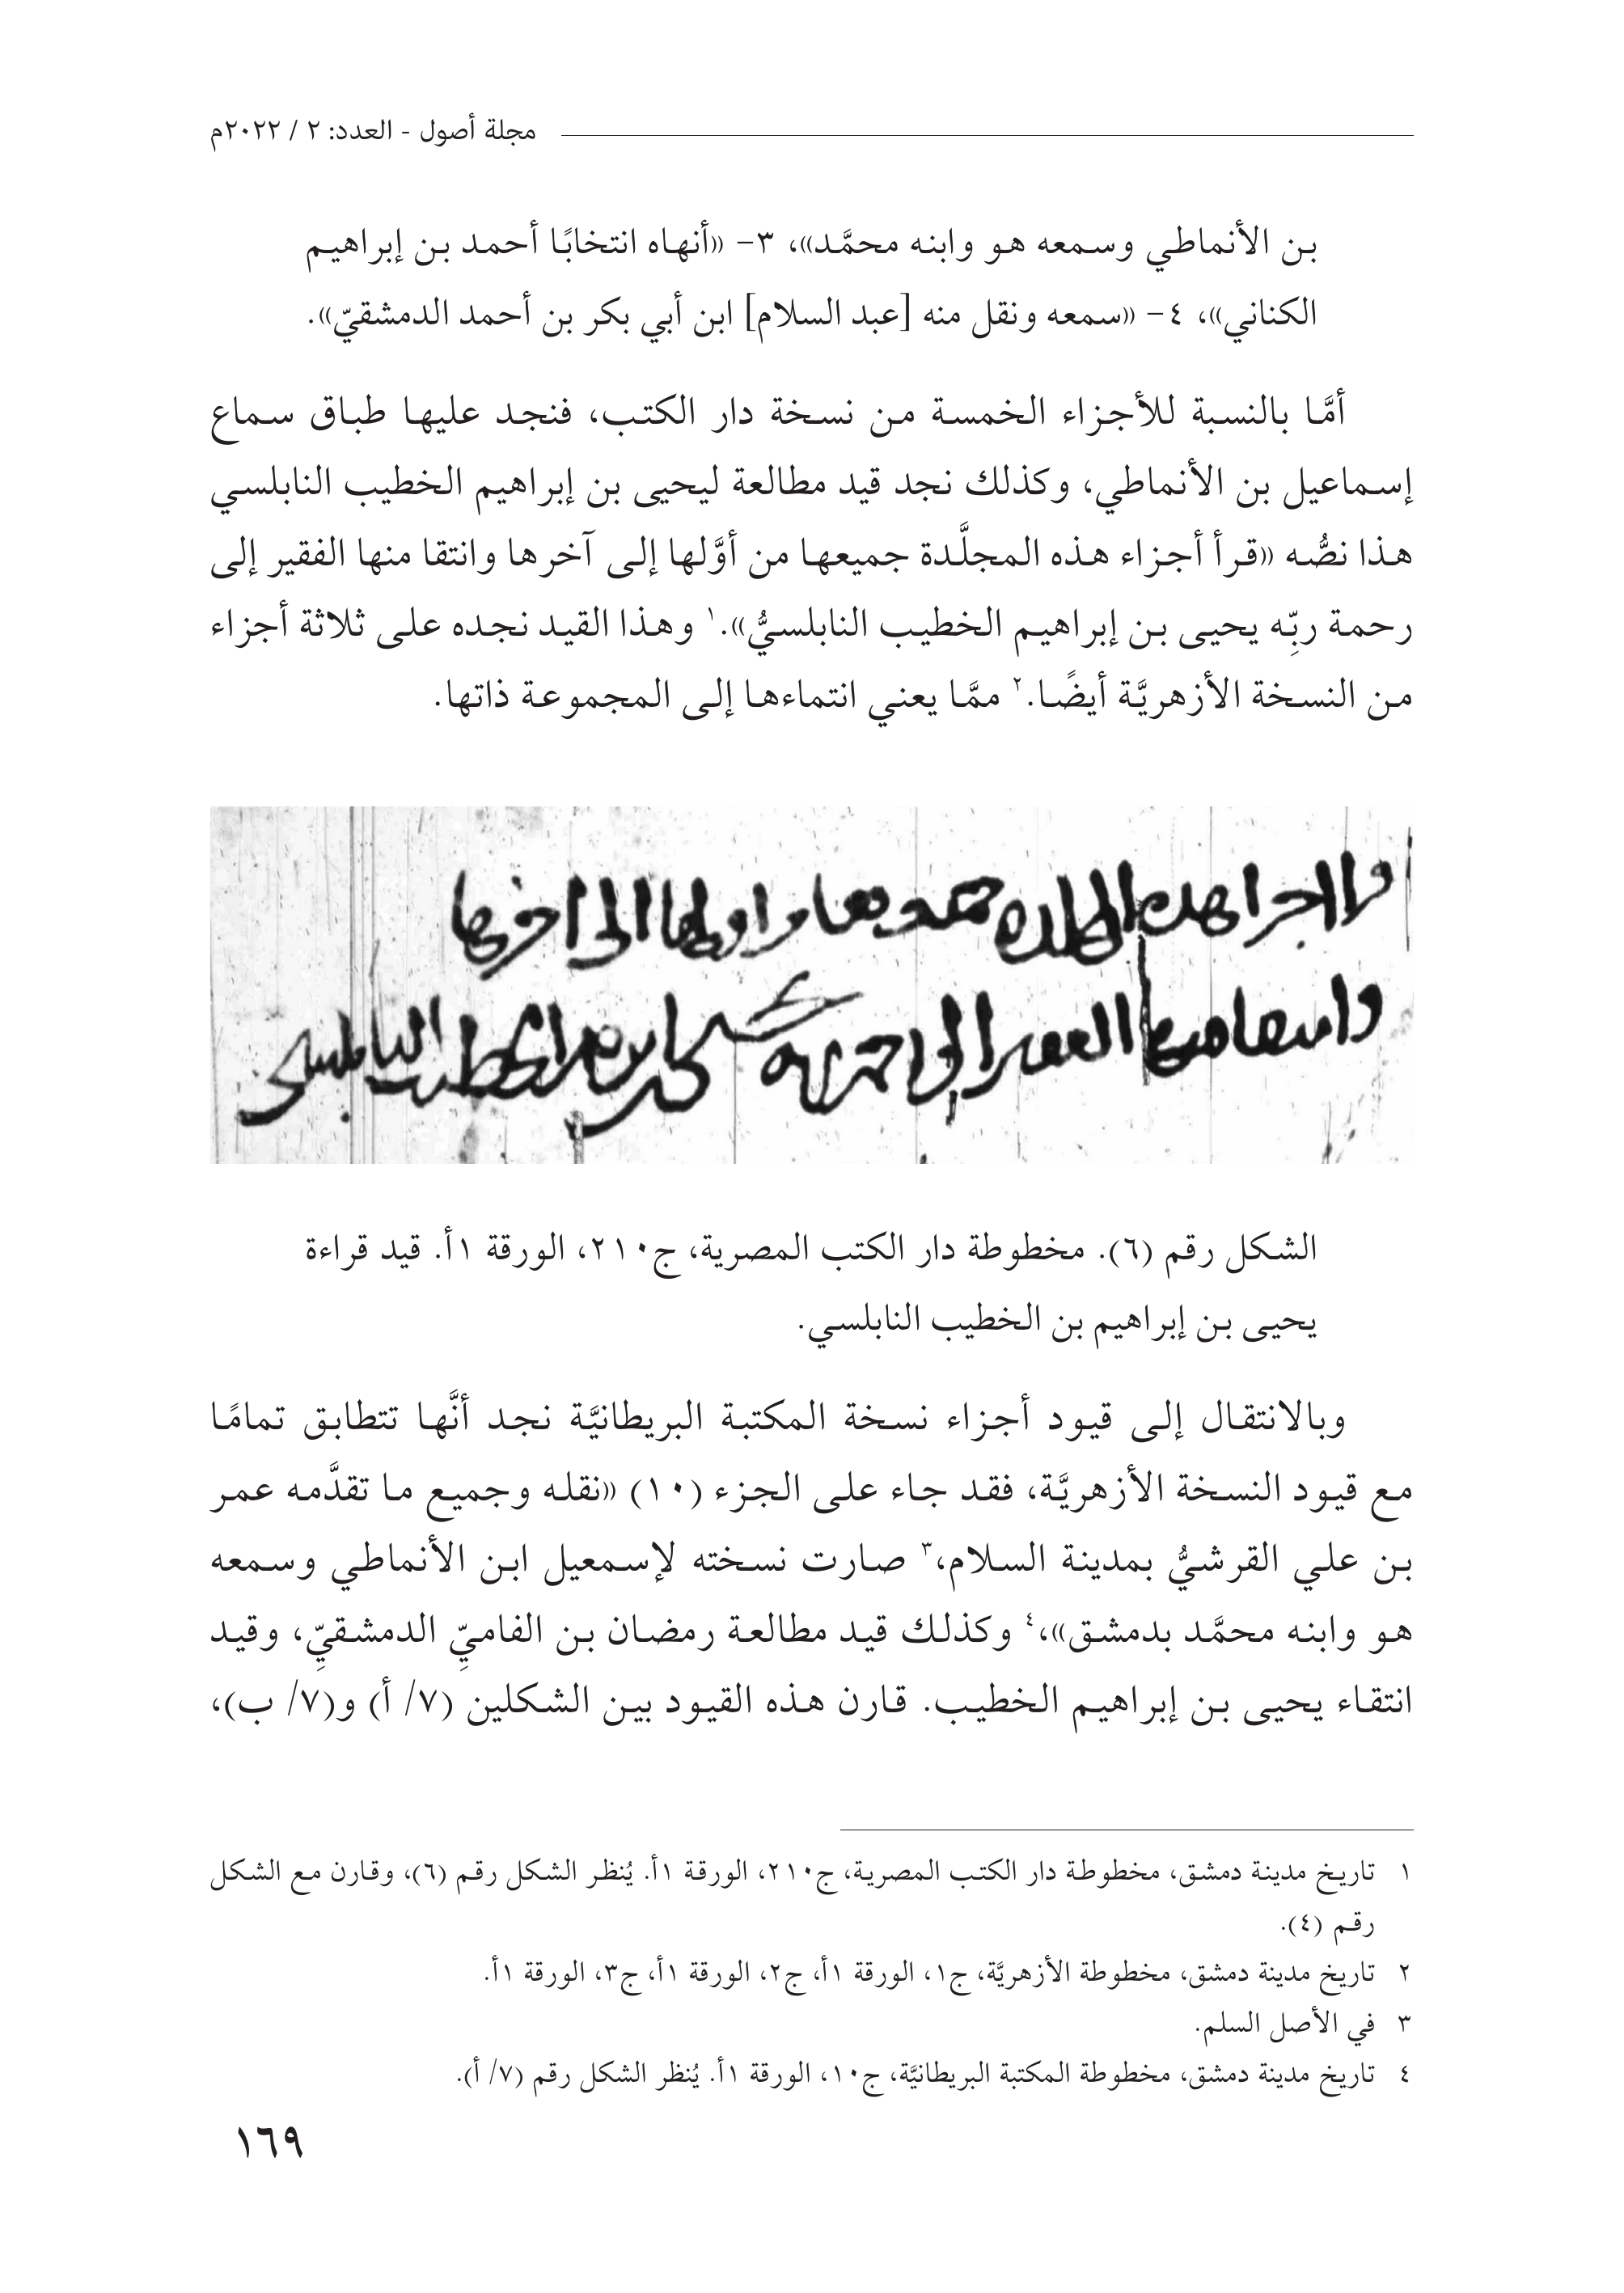 مجلة أصول - العدد: ٢ / ٢٠٢٢م
بن الأنماطي وسمعه هو وابنه محمَّد»، ٣- «أنهاه انتخابًا أحمد بن إبراهيم
الكناني»، ٤- «سمعه ونقل منه [عبد السلام] ابن أبي بكر بن أحمد الدمشقيّ».
أمَّا بالنسبة للأجزاء الخمسة من نسخة دار الكتب، فنجد عليها طباق سماع
إسماعيل بن الأنماطي، وكذلك نجد قيد مطالعة ليحيى بن إبراهيم الخطيب النابلسي
هذا نصُّه «قرأ أجزاء هذه المجلَّدة جميعها من أوَّلها إلى آخرها وانتقا منها الفقير إلى
رحمة ربِّه يحيى بن إبراهيم الخطيب النابلسيُّ».١ وهذا القيد نجده على ثلاثة أجزاء
من النسخة الأزهريَّة أيضًا.٢ ممَّا يعني انتماءها إلى المجموعة ذاتها.
قرا اجزا هذه المجلده جميعها من اولها الى اخرها
وانتقا منها الفقير الى رحمة ربه يحيى بن ابراهيم الخطيب النابلسي
الشكل رقم (٦). مخطوطة دار الكتب المصرية، ج٢١٠، الورقة ١أ. قيد قراءة
يحيى بن إبراهيم بن الخطيب النابلسي.
وبالانتقال إلى قيود أجزاء نسخة المكتبة البريطانيَّة نجد أنَّها تتطابق تمامًا
مع قيود النسخة الأزهريَّة، فقد جاء على الجزء (١٠) «نقله وجميع ما تقدَّمه عمر
بن علي القرشيُّ بمدينة السلام،٣ صارت نسخته لإسمعيل ابن الأنماطي وسمعه
هو وابنه محمَّد بدمشق»،٤ وكذلك قيد مطالعة رمضان بن الفاميِّ الدمشقيِّ، وقيد
انتقاء يحيى بن إبراهيم الخطيب. قارن هذه القيود بين الشكلين (٧/ أ) و(٧/ ب)،
١ تاريخ مدينة دمشق، مخطوطة دار الكتب المصرية، ج٢١٠، الورقة ١أ. يُنظر الشكل رقم (٦)، وقارن مع الشكل
رقم (٤).
٢ تاريخ مدينة دمشق، مخطوطة الأزهريَّة، ج١، الورقة ١أ، ج٢، الورقة ١أ، ج٣، الورقة ١أ.
٣ في الأصل السلم.
٤ تاريخ مدينة دمشق، مخطوطة المكتبة البريطانيَّة، ج١٠، الورقة ١أ. يُنظر الشكل رقم (٧/ أ).
١٦٩